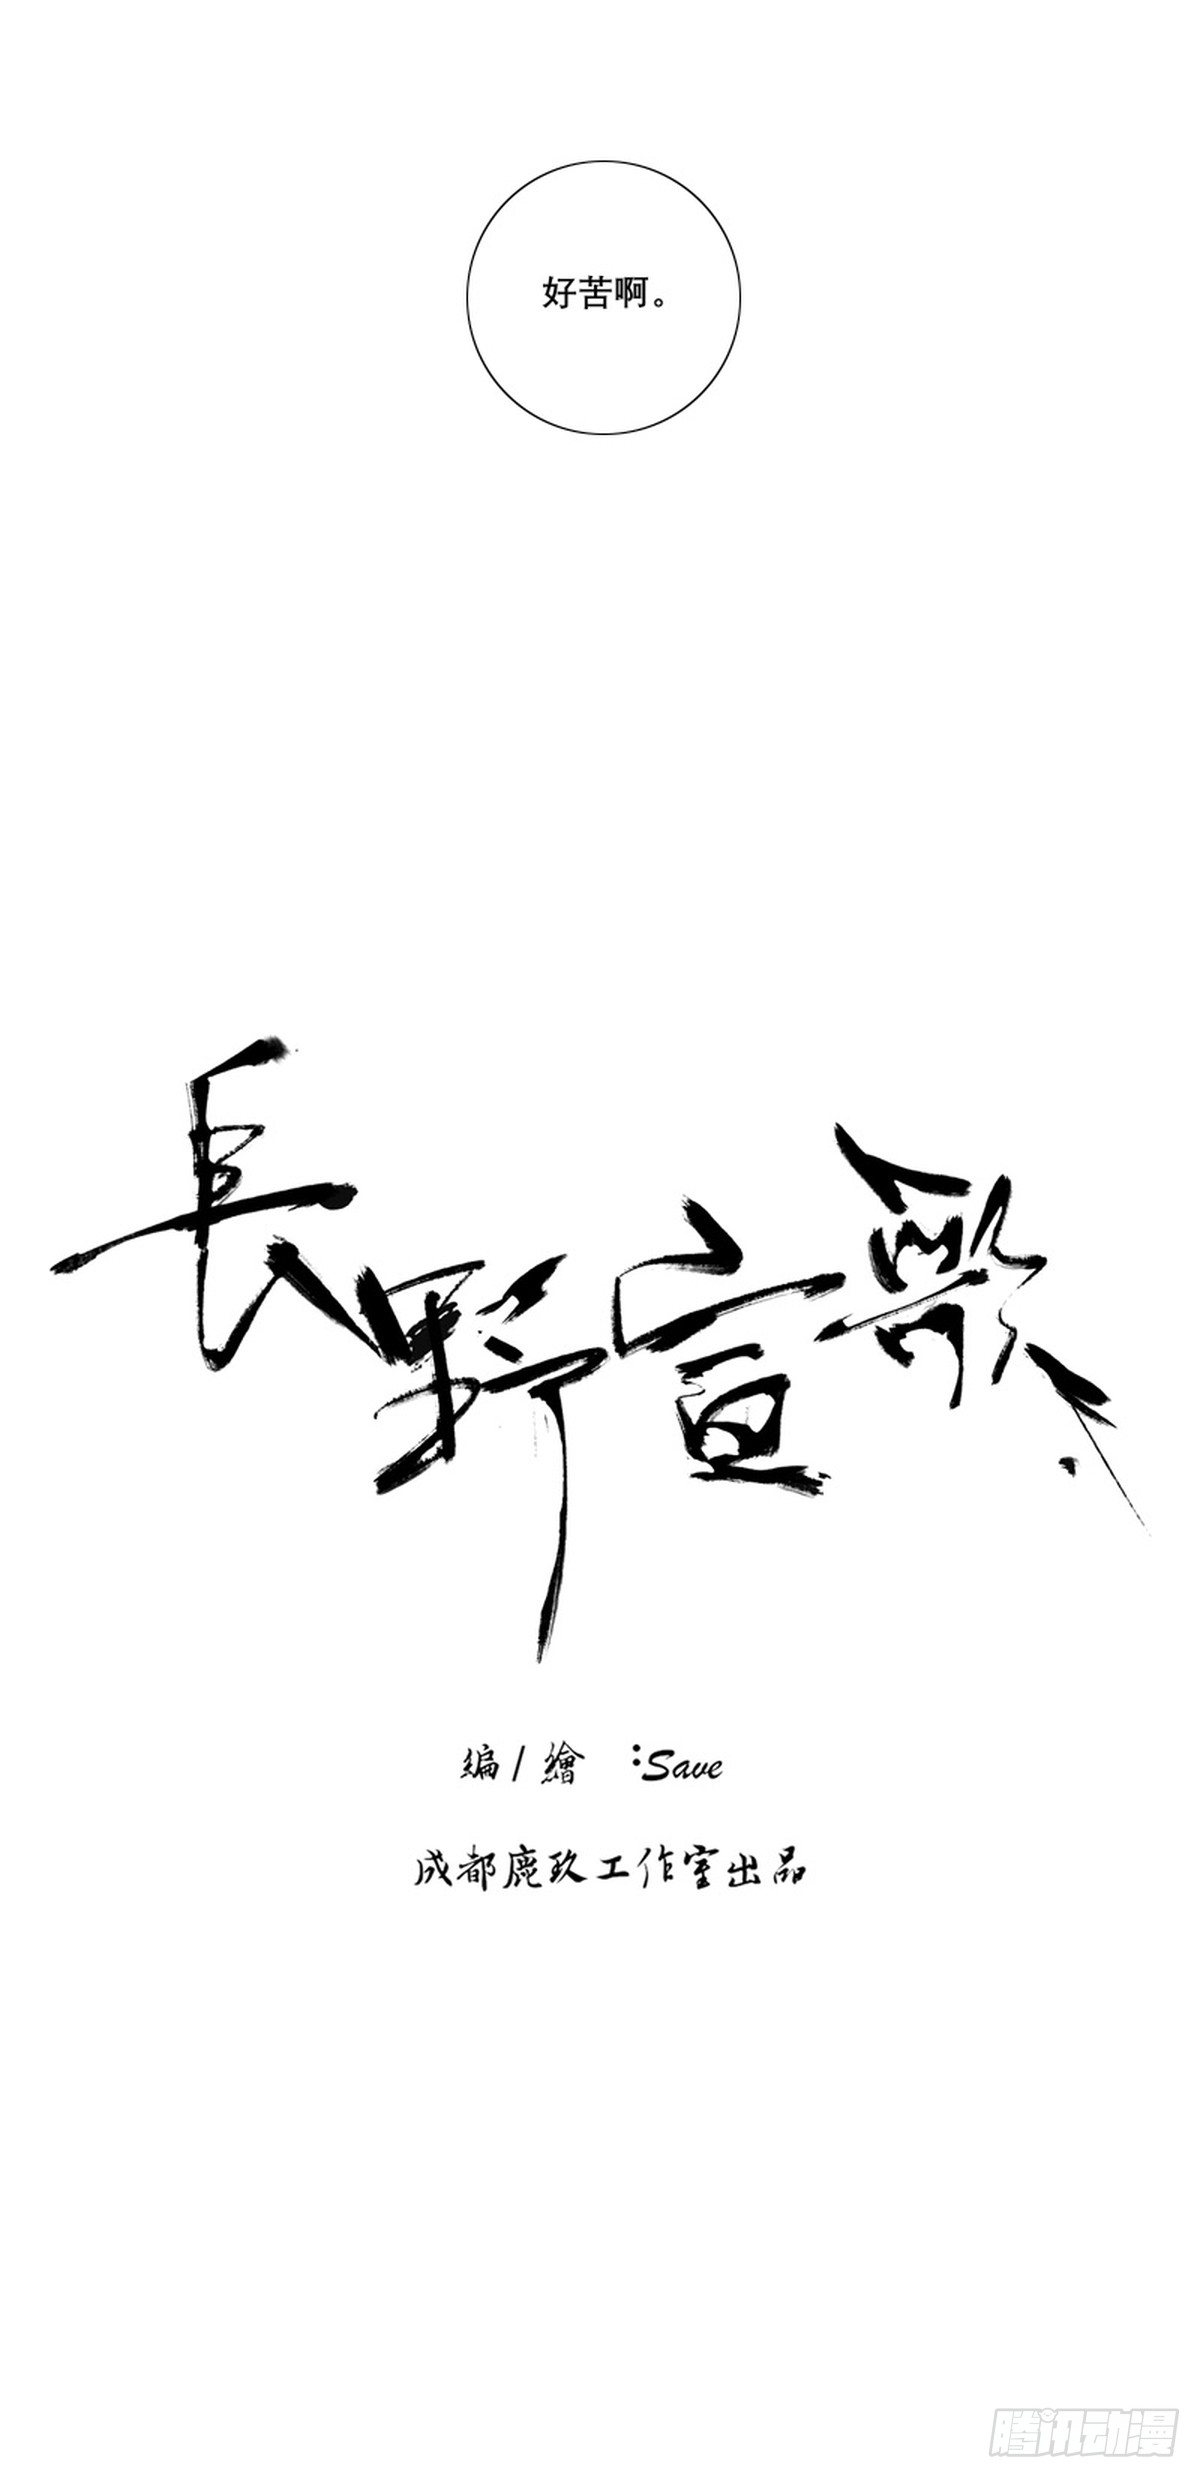 好苦啊。
長野宣歌
編/繪 :Save
成都鹿玖工作室出品
腾讯动漫